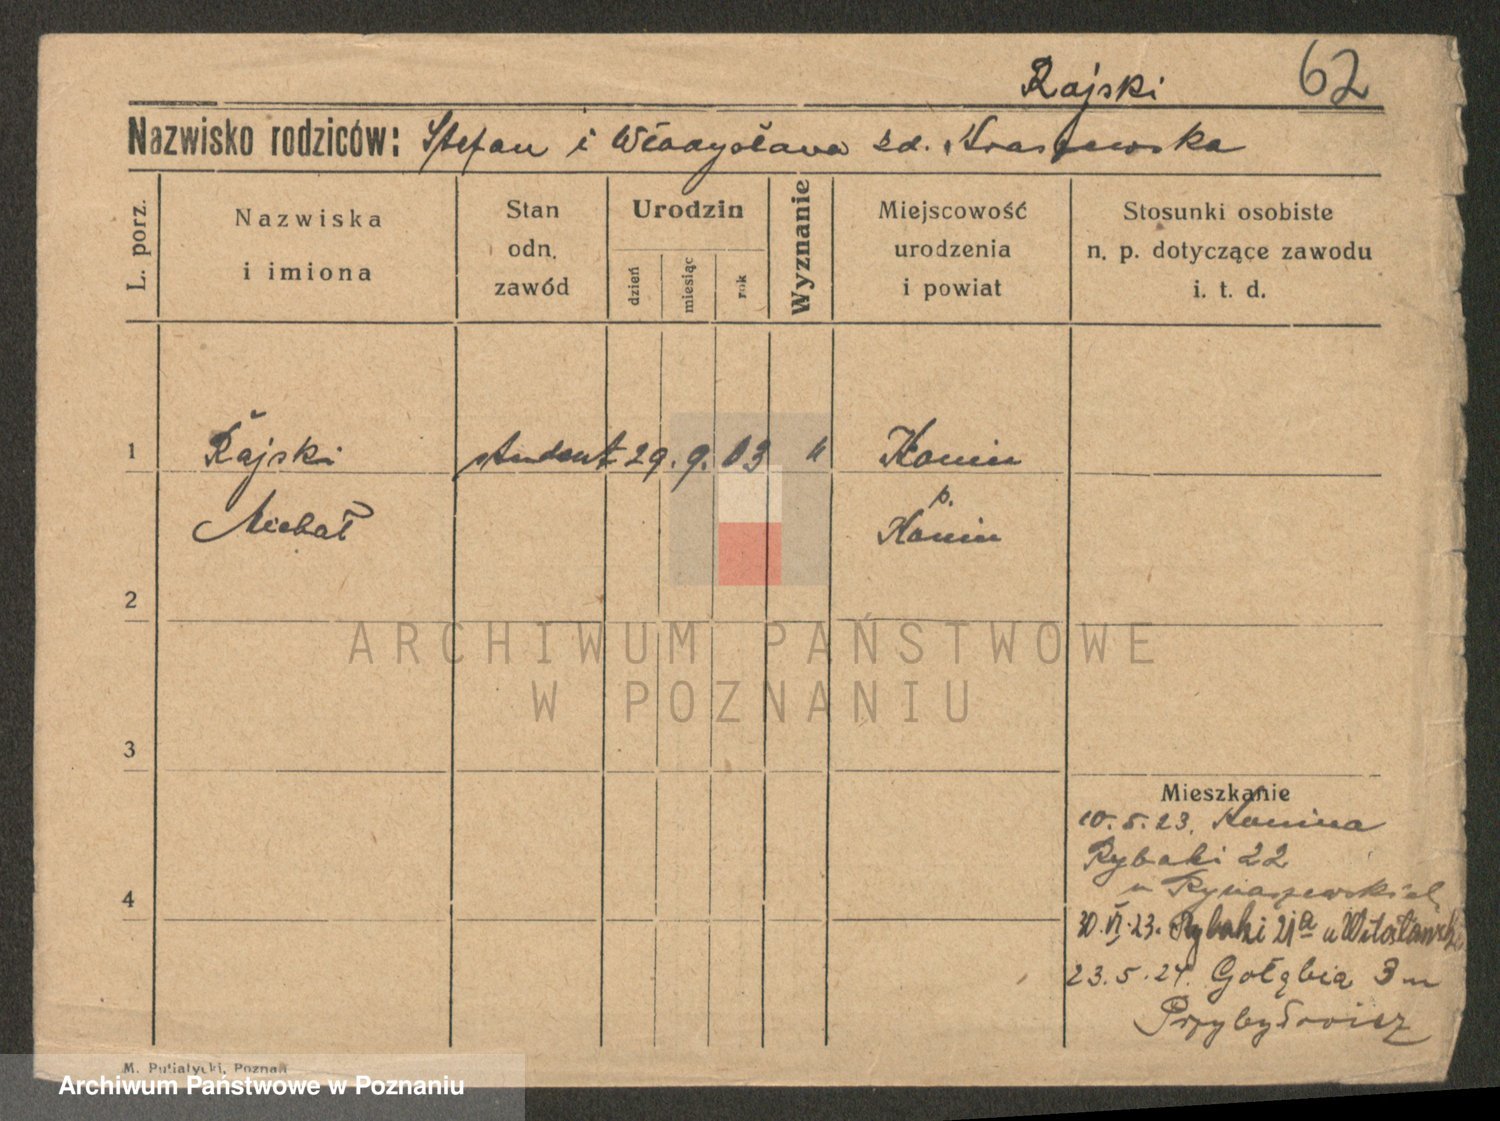 Rajski 62
Nazwisko rodziców: Stefan i Władysława zd. Kraszewska
L. porz.
Nazwiska
i imiona
Stan
odn.
zawód
Urodzin
dzień
miesiąc
rok
Wyznanie
Miejscowość
urodzenia
i powiat
Stosunki osobiste
n. p. dotyczące zawodu
i. t. d.
1 Rajski student 29. 9. 03 k Konin
Michał p.
Konin
2
3
4
Mieszkanie
10. 5. 23. Konina
Rybaki 22
u
30. VI. 23. Rybaki 21a u Witosławski
23. 5. 24. Gołębia 3 u
Przybyłowicz
M. Putiatycki, Poznań
ARCHIWUM PAŃSTWOWE
W POZNANIU
Archiwum Państwowe w Poznaniu